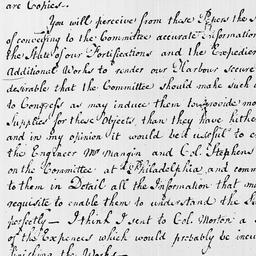 are Copies..
You will perceive from these Papers the s
of conceiving to the Committee accurate Information
the State of our Fortifications and the Expedien
Additional Works to render our Harbour secure
desirable that the Committee should make such
to Congress as may induce them to provide mo
Supplies for these Objects, than they have hithe
and in my opinion it would be useful to c
the Engineer Mr Mangin and Col. Stephens
on the Committee at Philadelphia, and comm
to them in Detail all the Information that ma
requisite to enable them to understand the Su
perfectly — I think I sent to Col. Morton a S
of the Expences which would probably be incu
finishing the Works —